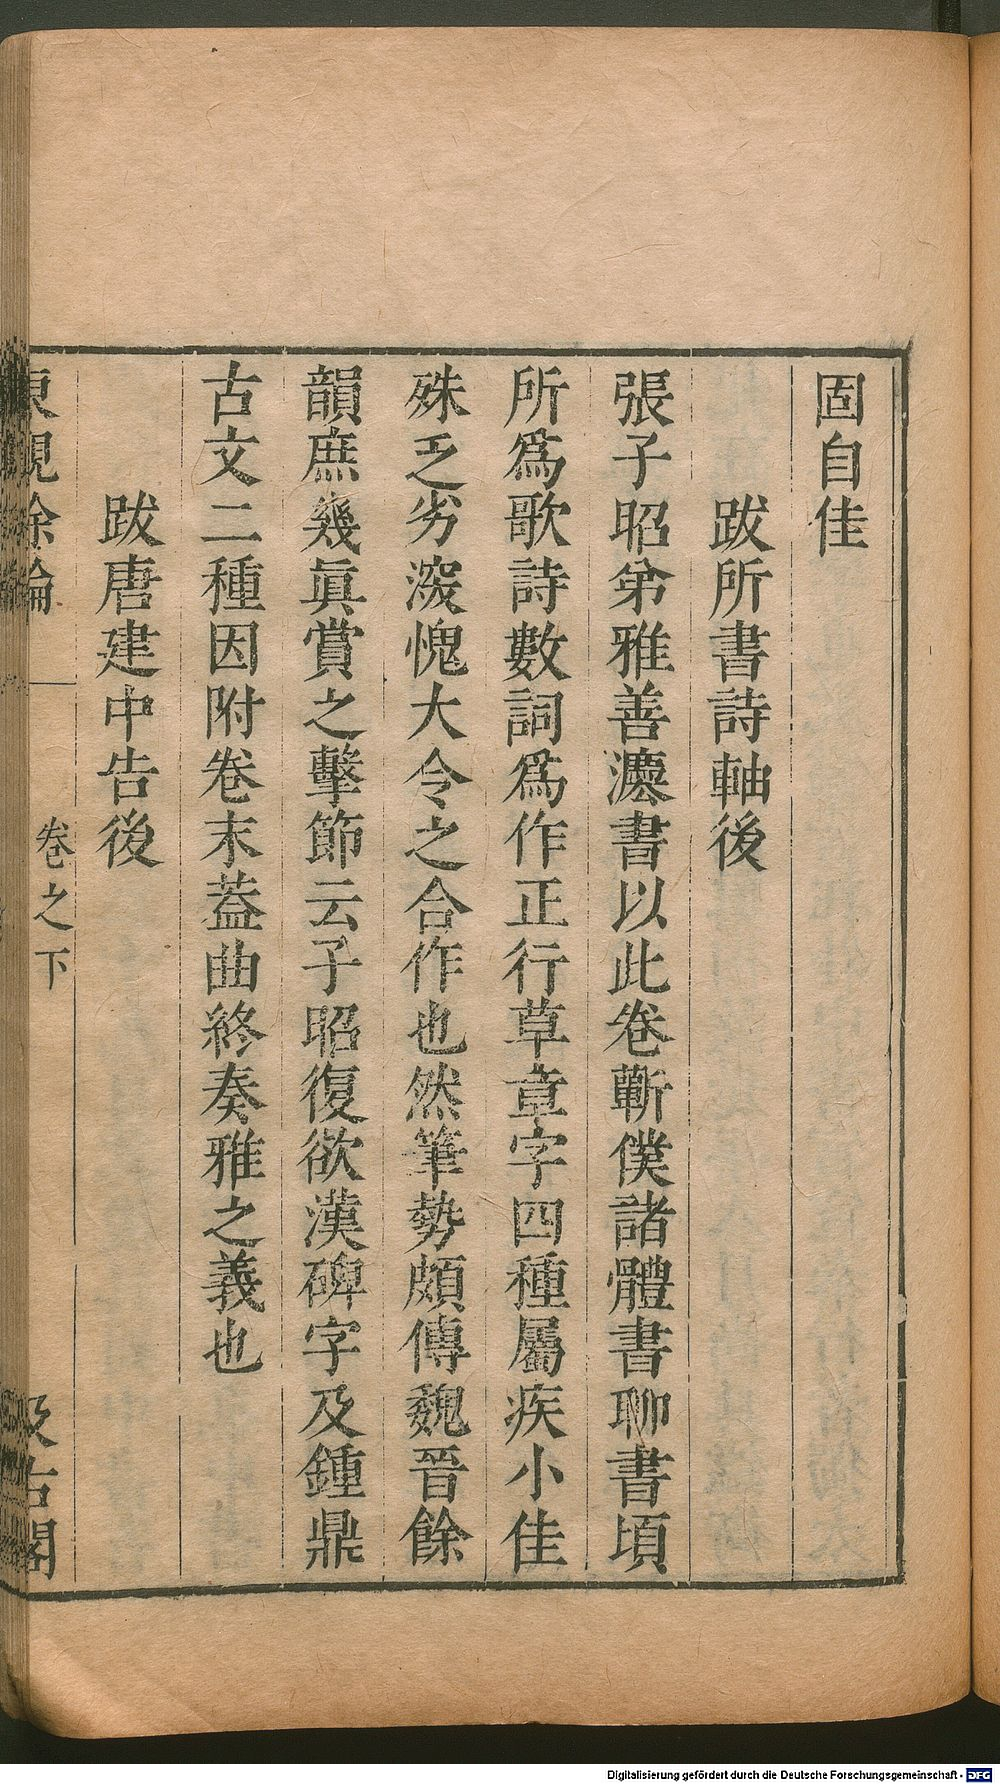 固自佳
跋所書詩軸後
張子昭弟雅善灋書以此卷蘄僕諸體書聊書頃
所爲歌詩數詞爲作正行草章字四種屬疾小佳
殊乏劣深愧大令之合作也然筆勢頗傳魏晉餘
韻庶幾眞賞之擊節云子昭復欲漢碑字及鍾鼎
古文二種因附卷末葢曲終奏雅之義也
跋唐建中告後
東觀餘論
卷之下
汲古閣
Digitalisierung gefördert durch die Deutsche Forschungsgemeinschaft - DFG